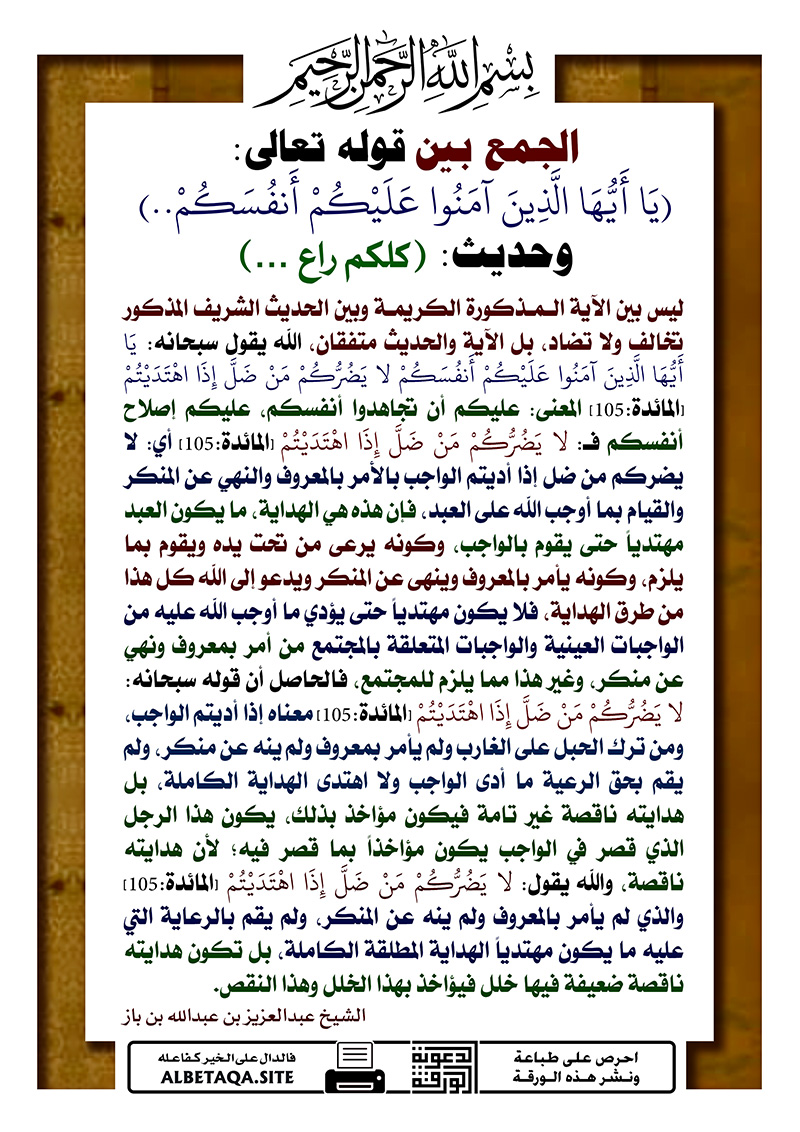 بِسْمِ اللَّهِ الرَّحْمَنِ الرَّحِيمِ
الجمع بين قوله تعالى:
(يَا أَيُّهَا الَّذِينَ آمَنُوا عَلَيْكُمْ أَنفُسَكُمْ..)
وحديث: (كلكم راع ...)
ليس بين الآية المـذكورة الكريمـة وبين الحديث الشريف المذكور
تخالف ولا تضاد، بل الآية والحديث متفقان، الله يقول سبحانه: يَا
أَيُّهَا الَّذِينَ آمَنُوا عَلَيْكُمْ أَنفُسَكُمْ لا يَضُرُّكُمْ مَنْ ضَلَّ إِذَا اهْتَدَيْتُمْ
[المائدة:105] المعنى: عليكم أن تجاهدوا أنفسكم، عليكم إصلاح
أنفسكم فـ: لا يَضُرُّكُمْ مَنْ ضَلَّ إِذَا اهْتَدَيْتُمْ [المائدة:105] أي: لا
يضركم من ضل إذا أديتم الواجب بالأمر بالمعروف والنهي عن المنكر
والقيام بما أوجب الله على العبد، فإن هذه هي الهداية، ما يكون العبد
مهتدياً حتى يقوم بالواجب، وكونه يرعى من تحت يده ويقوم بما
يلزم، وكونه يأمر بالمعروف وينهى عن المنكر ويدعو إلى الله كل هذا
من طرق الهداية، فلا يكون مهتدياً حتى يؤدي ما أوجب الله عليه من
الواجبات العينية والواجبات المتعلقة بالمجتمع من أمر بمعروف ونهي
عن منكر، وغير هذا مما يلزم للمجتمع، فالحاصل أن قوله سبحانه:
لا يَضُرُّكُمْ مَنْ ضَلَّ إِذَا اهْتَدَيْتُمْ [المائدة:105] معناه إذا أديتم الواجب،
ومن ترك الحبل على الغارب ولم يأمر بمعروف ولم ينه عن منكر، ولم
يقم بحق الرعية ما أدى الواجب ولا اهتدى الهداية الكاملة، بل
هدايته ناقصة غير تامة فيكون مؤاخذ بذلك، يكون هذا الرجل
الذي قصر في الواجب يكون مؤاخذاً بما قصر فيه؛ لأن هدايته
ناقصة، والله يقول: لا يَضُرُّكُمْ مَنْ ضَلَّ إِذَا اهْتَدَيْتُمْ [المائدة:105]
والذي لم يأمر بالمعروف ولم ينه عن المنكر، ولم يقم بالرعاية التي
عليه ما يكون مهتدياً الهداية المطلقة الكاملة، بل تكون هدايته
ناقصة ضعيفة فيها خلل فيؤاخذ بهذا الخلل وهذا النقص.
الشيخ عبدالعزيز بن عبدالله بن باز
احرص على طباعة
ونشر هذه الورقة
الورقة
الدعوية
فالدال على الخير كفاعله
ALBETAQA.SITE